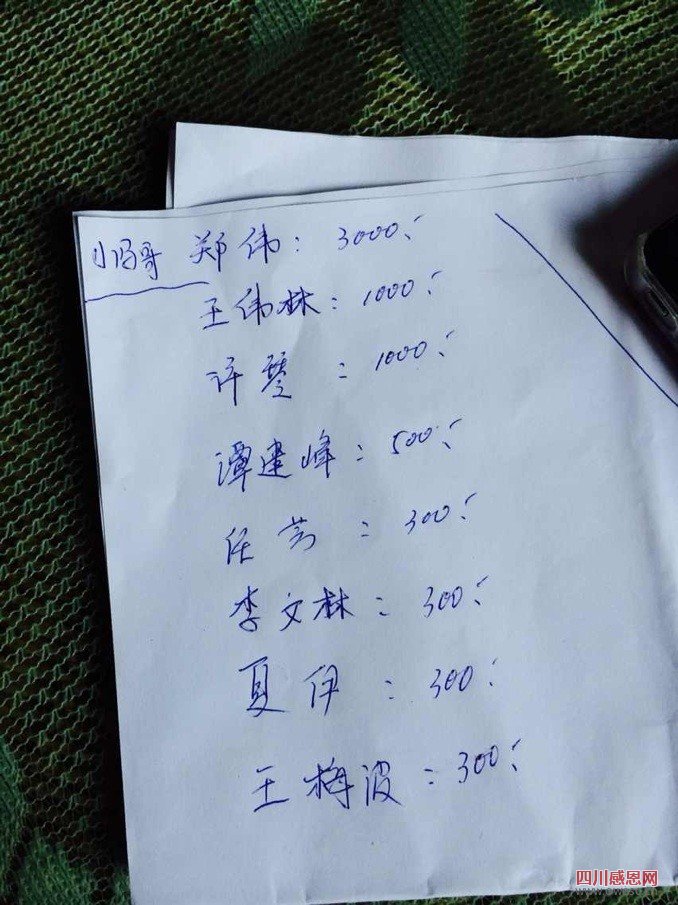 小冯哥 郑伟：3000.
王伟林：1000.
许琴：1000.
谭建峰：500.
任芳：300.
李文林：300.
夏伊：300.
王梅波：300.
四川感恩网